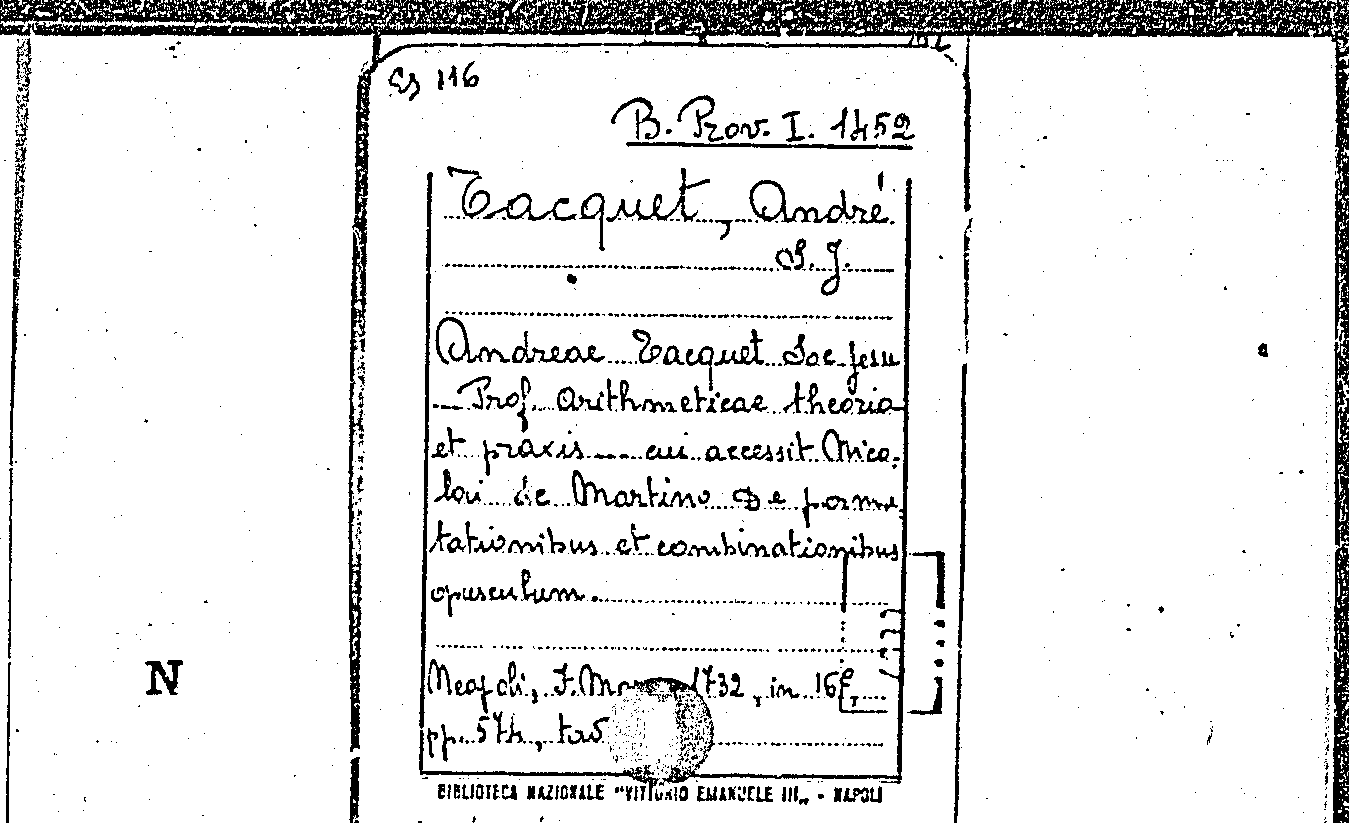 116
B. Prov. I. 1452
Tacquet, André
S. J.
Andreae Tacquet Soc Jesu
Prof. Arithmeticae theoria
et praxis ... cui accessit Nico-
lai de Martino De permu
tationibus et combinationibus
opusculum.
N
Neapoli, F. 1732, in 16°,
pp. 574, tav
BIBLIOTECA NAZIONALE "VITTORIO EMANUELE III" - NAPOLI